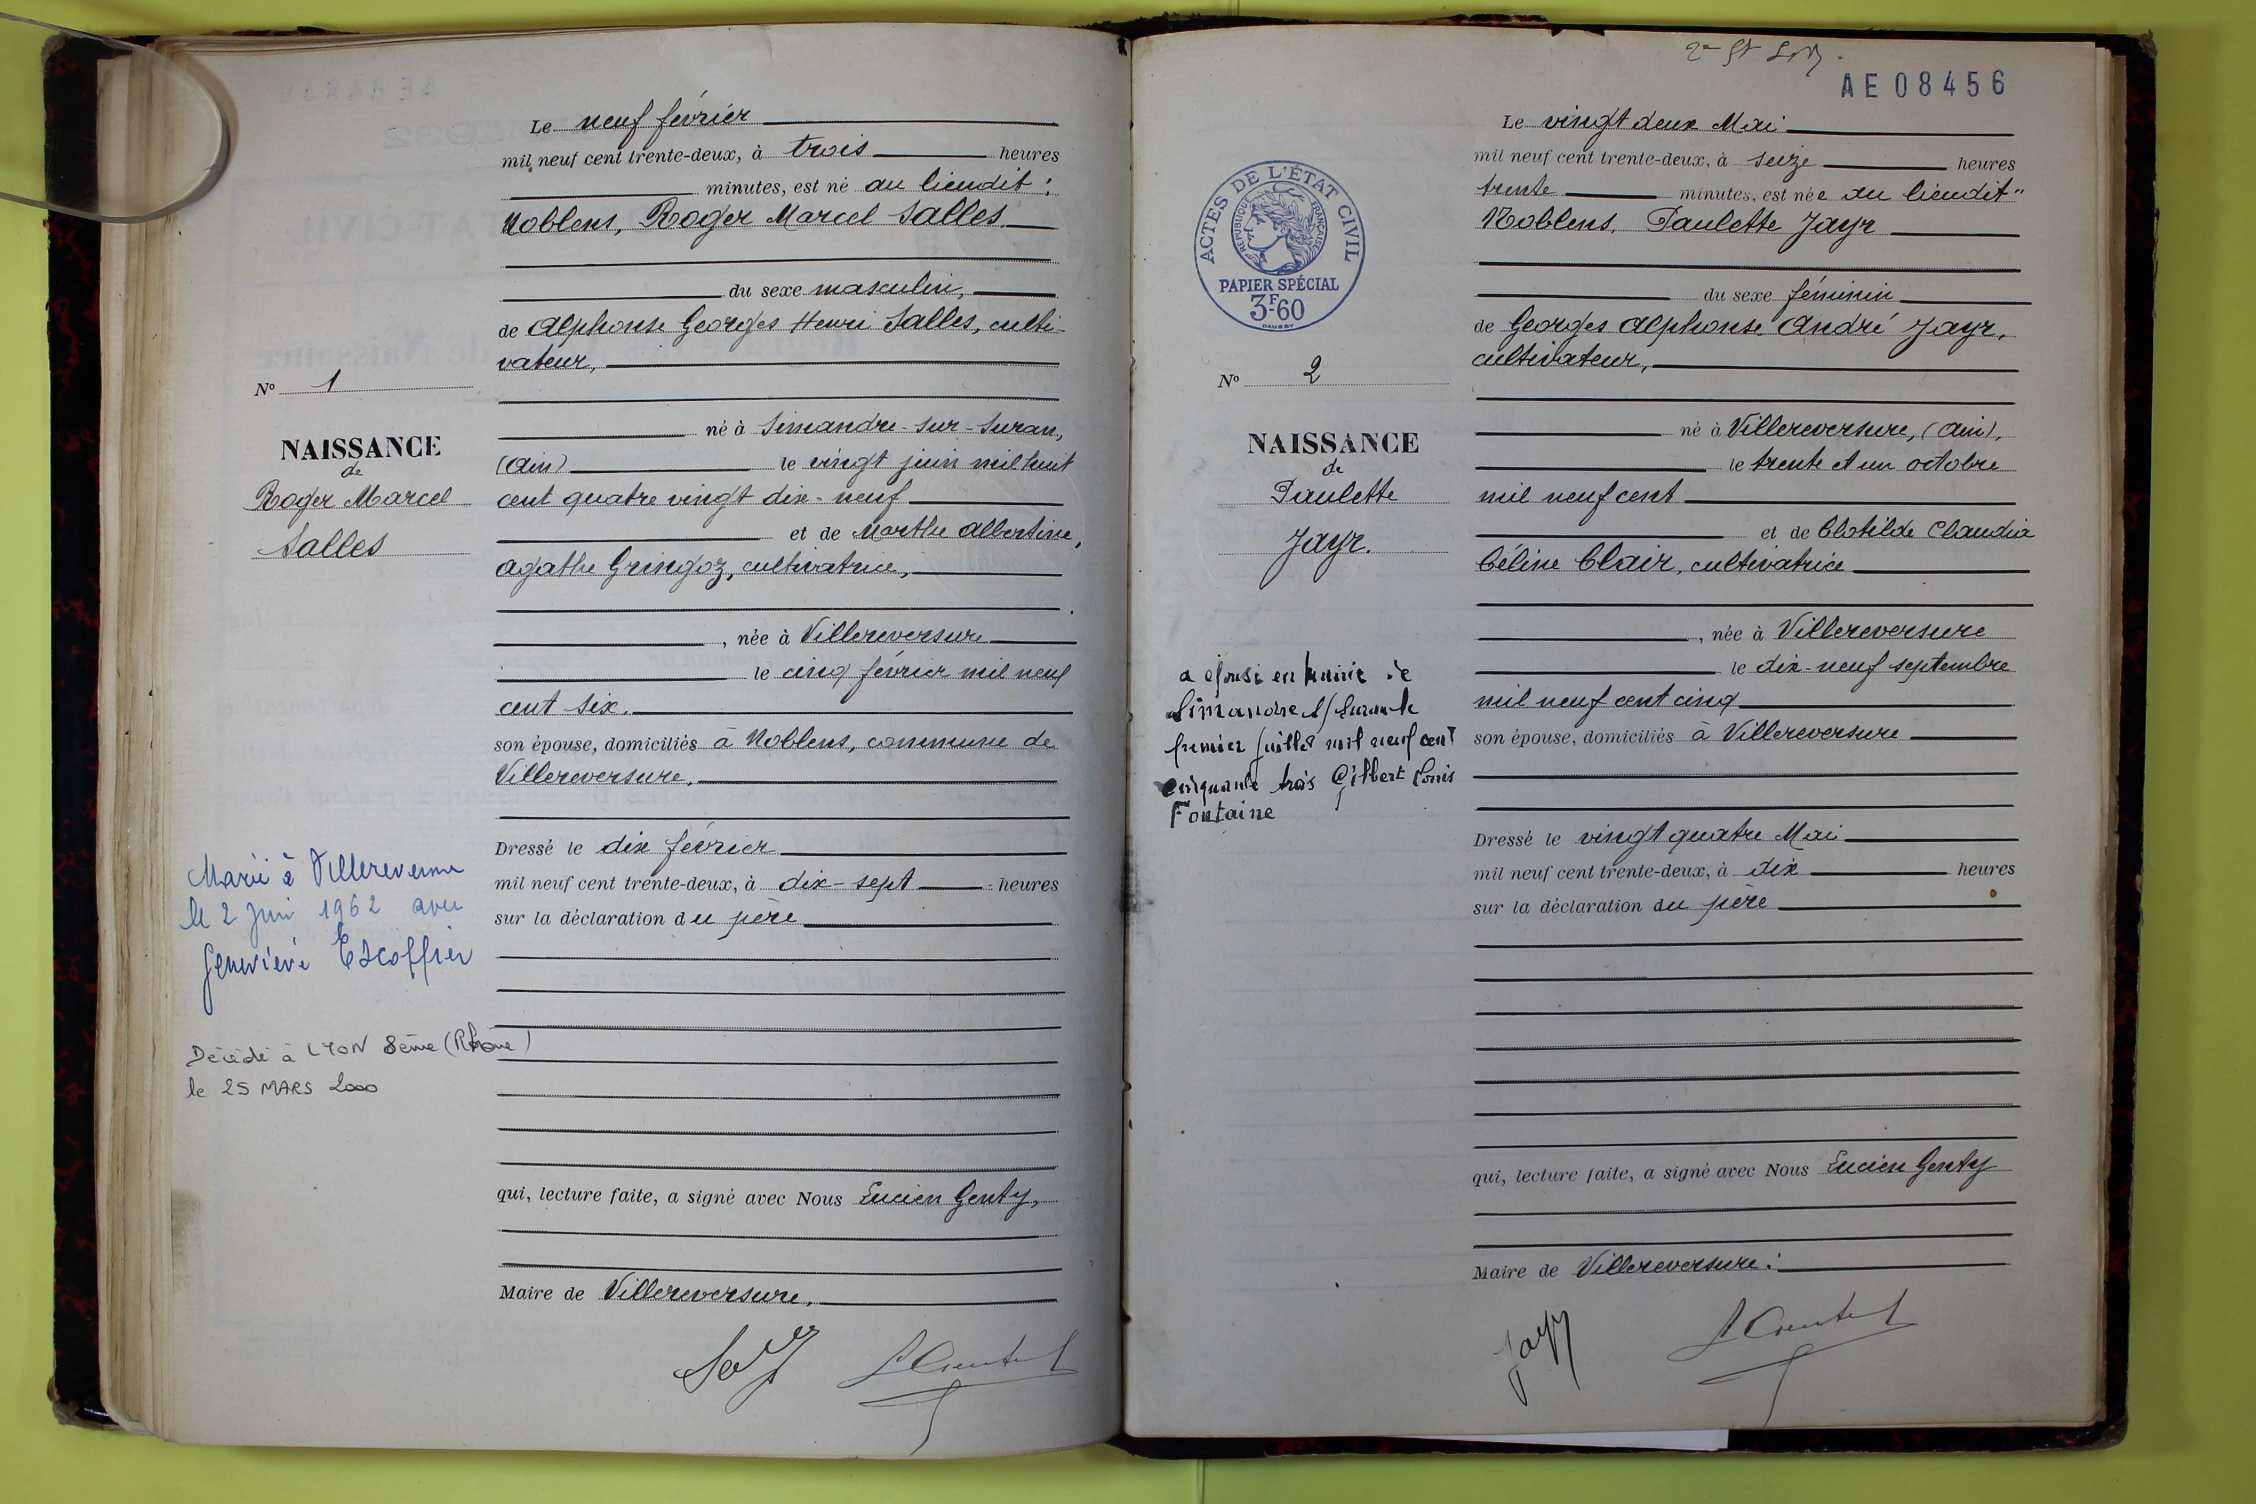 Le neuf février
mil neuf cent trente-deux, à trois heures
minutes, est né au lieudit :
Noblens, Roger Marcel Salles.
du sexe masculin,
de Alphonse Georges Henri Salles, culti-
vateur,
né à Simandre-sur-Suran,
(Ain) le vingt juin mil huit
cent quatre vingt dix-neuf
et de Marthe Albertine,
Agathe Gringoz, cultivatrice,
, née à Villereversure
le cinq février mil neuf
cent six.
son épouse, domiciliés à Noblens, commune de
Villereversure.
Dressé le dix février
mil neuf cent trente-deux, à dix-sept heures
sur la déclaration du père
qui, lecture faite, a signé avec Nous Lucien Genty,
Maire de Villereversure.
No 1
NAISSANCE
de
Roger Marcel
Salles
Marié à
le 2 Juin 1962 avec
Geneviève Escoffier
Décédé à LYON 8ème (Rhône)
le 25 MARS 2000
AE 08456
Le vingt deux Mai
mil neuf cent trente-deux, à seize heures
trente minutes, est née au lieudit"
Noblens. Paulette Jayr
du sexe féminin
de Georges Alphonse André Jayr,
cultivateur,
né à Villereversure, (Ain),
le trente et un octobre
mil neuf cent
et de Clotilde Claudia
Céline Clair, cultivatrice
, née à Villereversure
le dix-neuf septembre
mil neuf cent cinq
son épouse, domiciliés à Villereversure
Dressé le vingt quatre Mai
mil neuf cent trente-deux, à dix heures
sur la déclaration du père
qui, lecture faite, a signé avec Nous Lucien Genty
Maire de Villereversure :
Jayr
ACTES DE L'ÉTAT CIVIL
RÉPUBLIQUE FRANÇAISE
PAPIER SPÉCIAL
3F-60
DAUSSY
No 2
NAISSANCE
de
Paulette
Jayr.
a épousé en mairie de
Simandre s/ Suran le
premier juillet mil neuf cent
cinquante trois Gilbert Louis
Fontaine